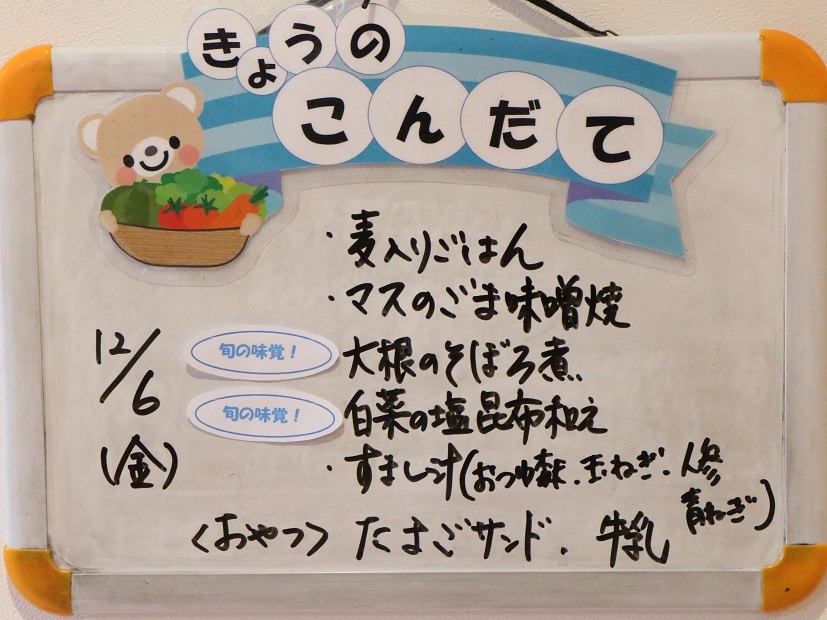 きょうの
こんだて
・麦入りごはん
・マスのごま味噌焼
12/6
(金)
旬の味覚！ 大根のそぼろ煮
旬の味覚！ 白菜の塩昆布和え
・すまし汁(おつゆ麸、玉ねぎ、人参
青ねぎ)
<おやつ> たまごサンド、牛乳